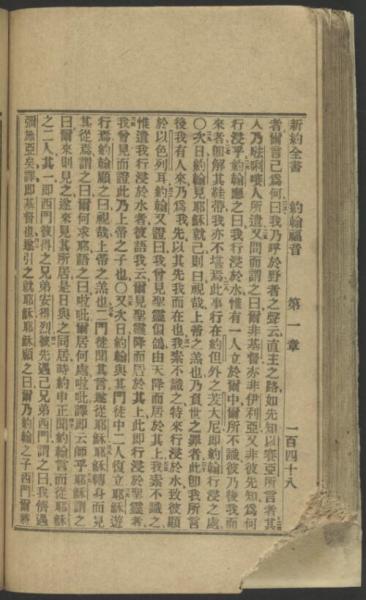 新約全書　約翰福音　第一章　一百四十八
者爾言己爲何曰我乃呼於野者之聲云直主之路如先知以賽亞所言者其
人乃𠵽唎㘔人所遣又問而謂之曰爾非基督亦非伊利亞又非彼先知爲何
行浸乎約翰應之曰我行浸於水惟有一人立於爾中爾所不識彼乃後我而
來者卽解其鞋帶我亦不堪焉此事行在約但外之茨大尼卽約翰行浸之處
〇次日約翰見耶穌就己則曰視哉上帝之羔也乃負世之罪者此卽我所言
後我有人來乃爲我先以其先我而在也我素不識之特來行浸於水致彼顯
於以色列耳約翰又證曰我曾見聖靈似鴿由天降而居於其上我素不識之
惟遣我行浸於水者彼語我云爾見聖靈降而居於其上此卽行浸於聖靈者
我曾見而證此乃上帝之子也〇又次日約翰與其門徒中二人復立耶穌遊
行焉約翰顧之曰視哉上帝之羔也二門徒聞其言遂從耶穌耶穌轉身而見
其從焉謂之曰爾何求耶語之曰啦吡爾居何處啦吡譯卽云師乎耶穌謂之
曰爾來則見之遂來見其所居是日與之同居時約申正聞約翰言而從耶穌
之二人其一卽西門彼得之兄弟安得烈彼先遇己兄弟西門謂之曰我儕遇
彌施亞矣譯卽基督也遂引之就耶穌耶穌顧之曰爾乃約翰之子西門爾將